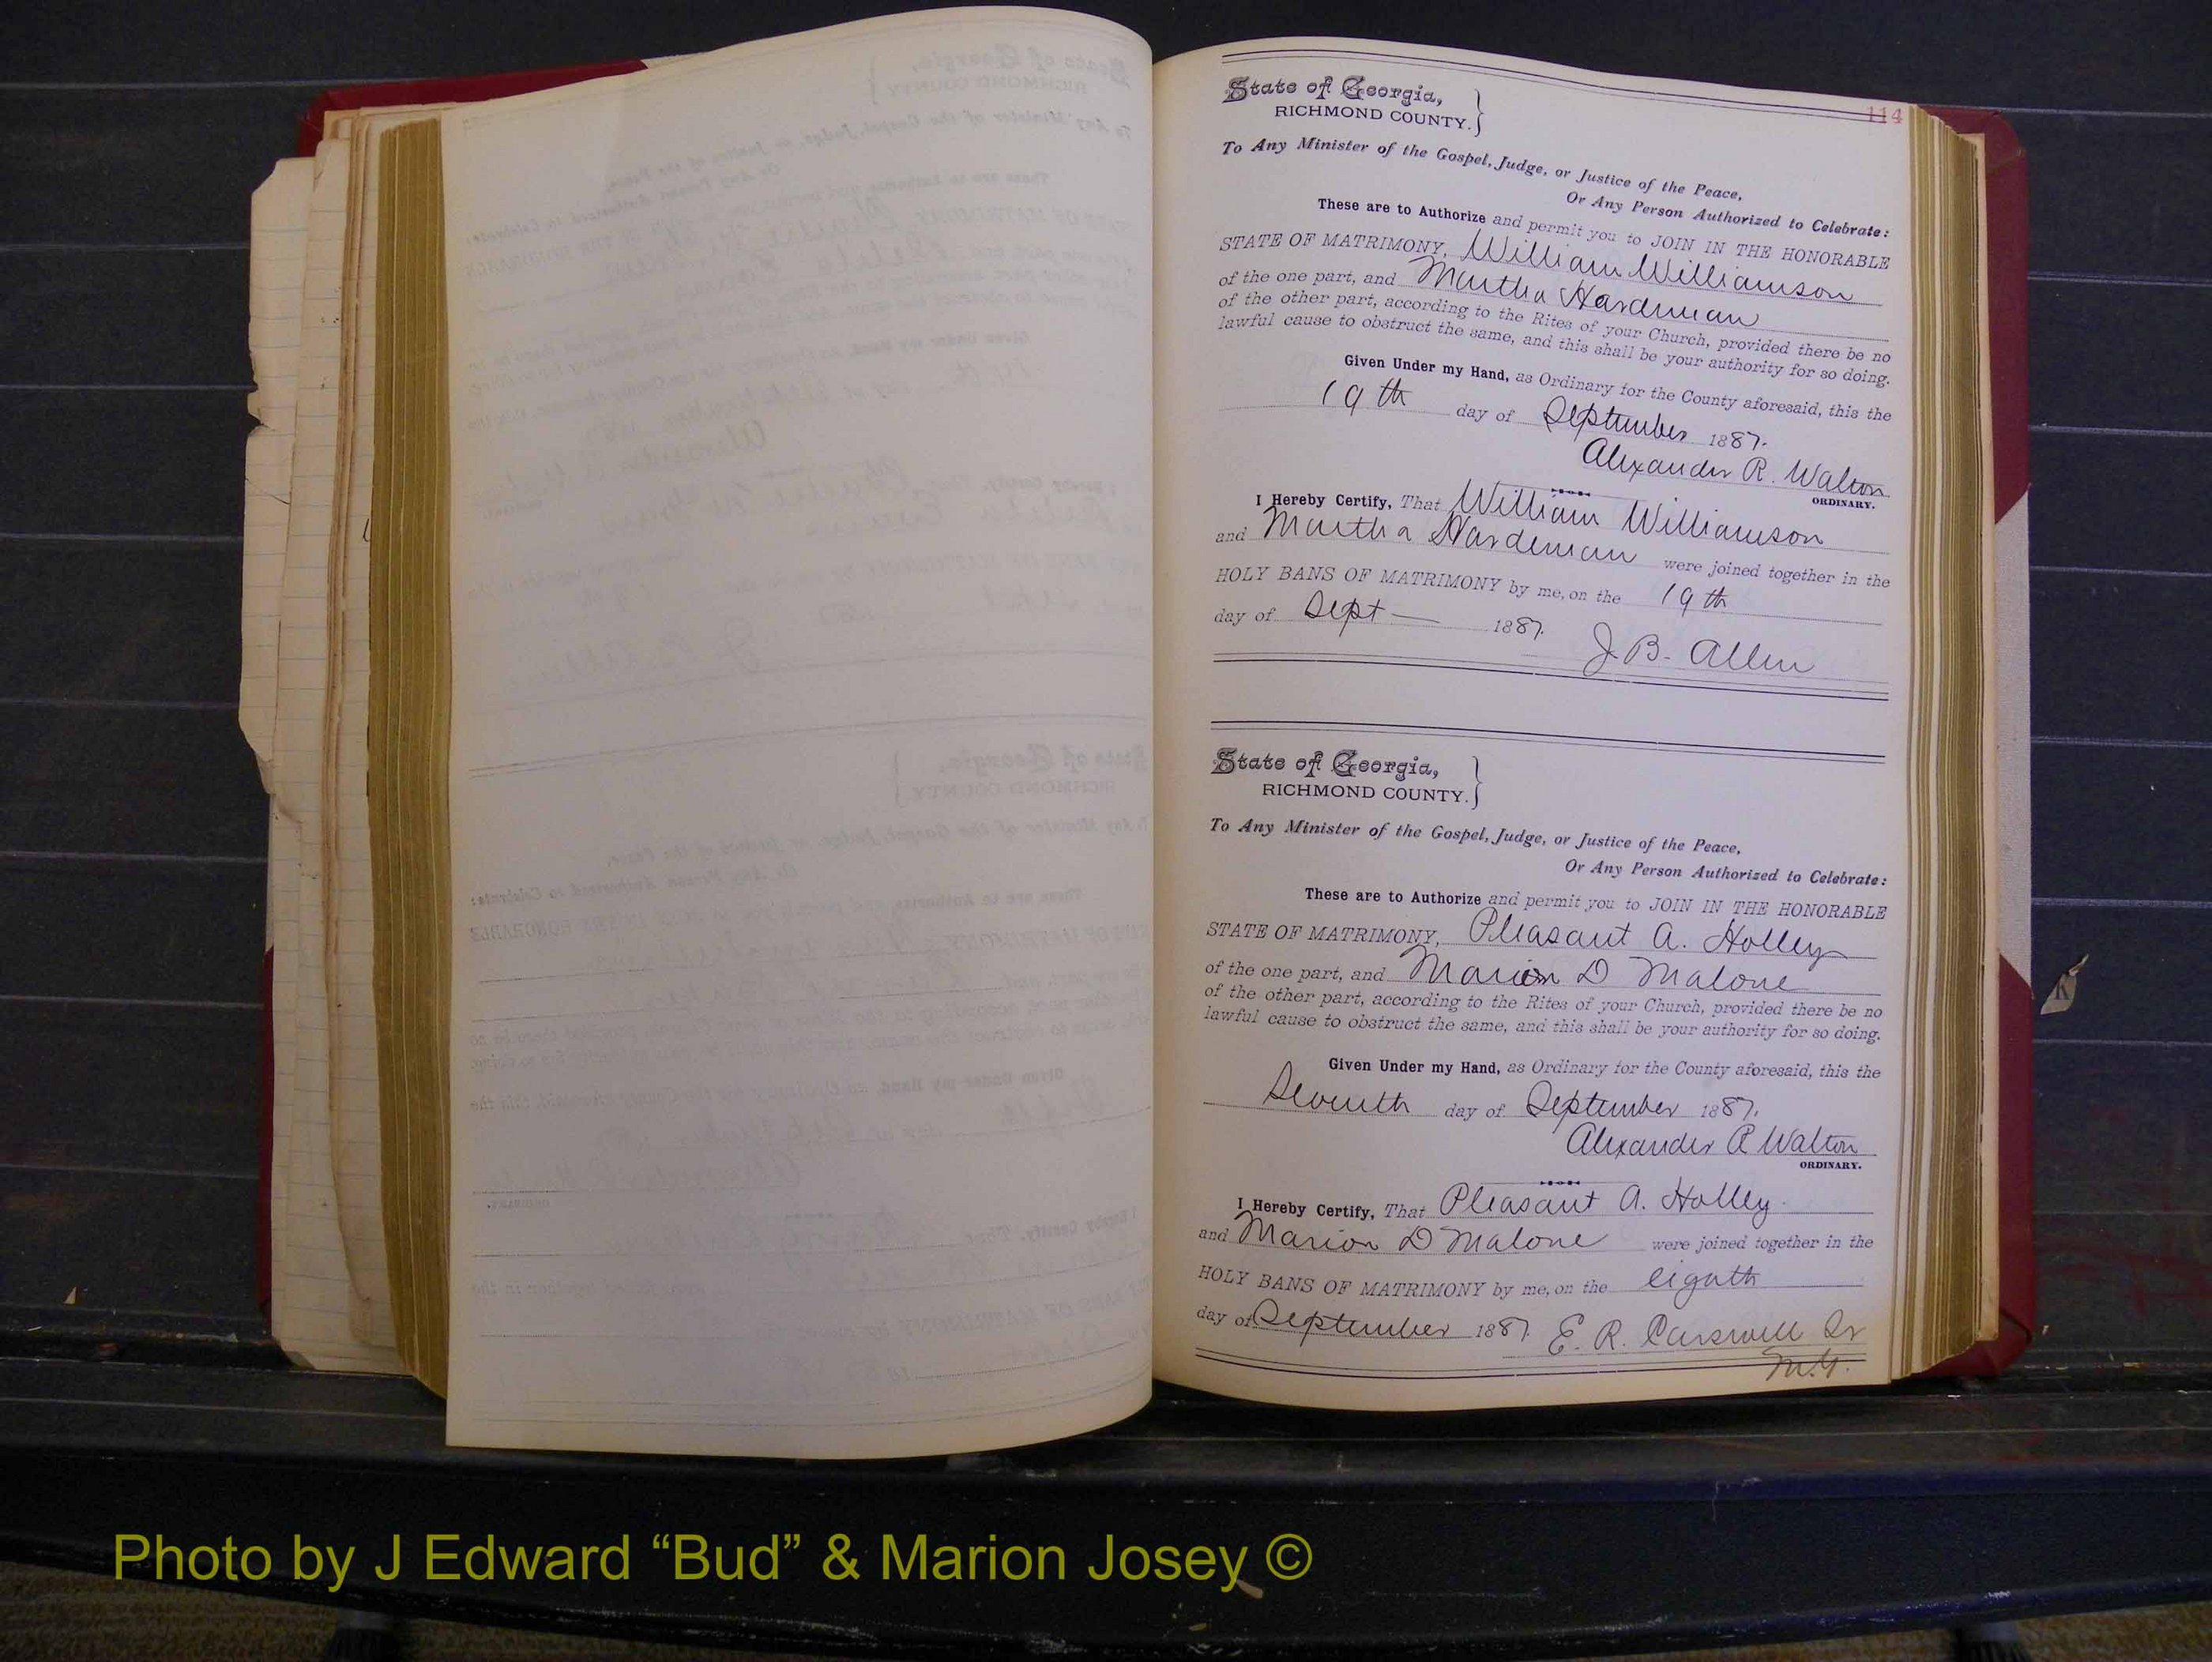 114
State of Georgia,
RICHMOND COUNTY.
To Any Minister of the Gospel, Judge, or Justice of the Peace,
Or Any Person Authorized to Celebrate:
These are to Authorize and permit you to JOIN IN THE HONORABLE
STATE OF MATRIMONY, William Williamson
of the one part, and Martha Hardeman
of the other part, according to the Rites of your Church, provided there be no
lawful cause to obstruct the same, and this shall be your authority for so doing.
Given Under my Hand, as Ordinary for the County aforesaid, this the
19th day of September 1887.
Alexander R. Walton
ORDINARY.
I Hereby Certify, That William Williamson
and Martha Hardeman were joined together in the
HOLY BANS OF MATRIMONY by me, on the 19th
day of Sept 1887.
J. B. Allen
State of Georgia,
RICHMOND COUNTY.
To Any Minister of the Gospel, Judge, or Justice of the Peace,
Or Any Person Authorized to Celebrate:
These are to Authorize and permit you to JOIN IN THE HONORABLE
STATE OF MATRIMONY, Pleasant A. Holley
of the one part, and Marion D Malone
of the other part, according to the Rites of your Church, provided there be no
lawful cause to obstruct the same, and this shall be your authority for so doing.
Given Under my Hand, as Ordinary for the County aforesaid, this the
Seventh day of September 1887.
Alexander R Walton
ORDINARY.
I Hereby Certify, That Pleasant A. Holley
and Marion D Malone were joined together in the
HOLY BANS OF MATRIMONY by me, on the eighth
day of September 1887. E. R. Carswell Sr
M.G.
Photo by J Edward “Bud” & Marion Josey ©